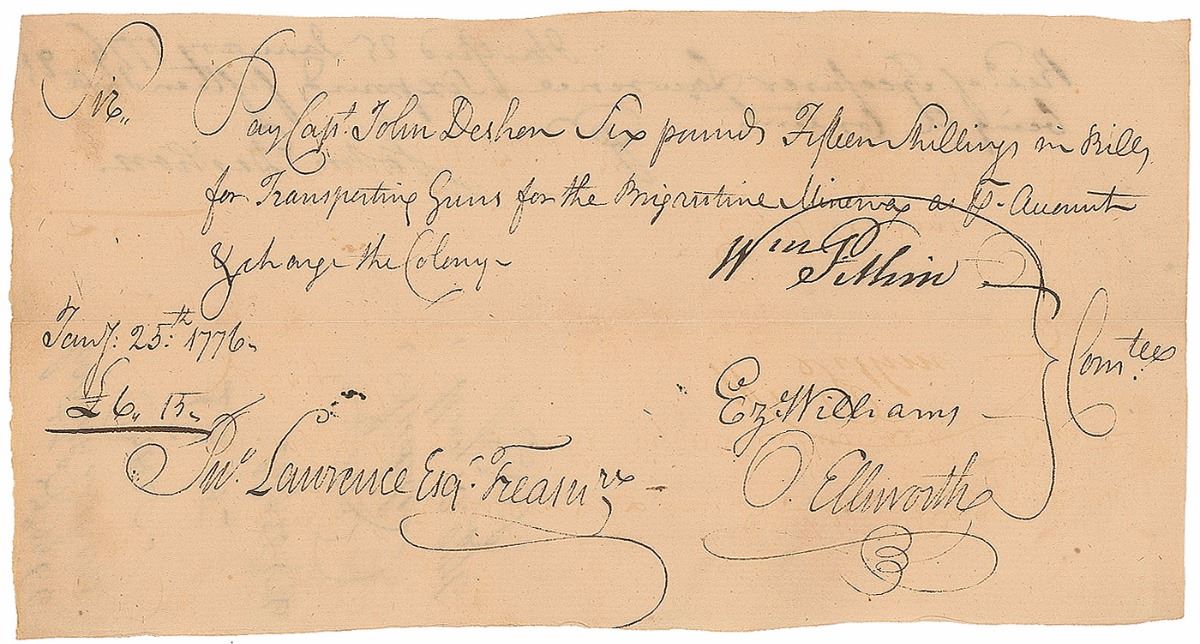 Sir,,
Pay Capt. John Deshon Six pounds Fifteen Shillings in Bills
for Transporting Guns for the Brigantine Minerva as ⅌ Account
& charge the Colony
Wm Pitkin
Jany. 25th 1776
Comtee
£6,, 15
Ez Williams
Jno. Lawrence Esqr. Treasurer
O. Ellsworth